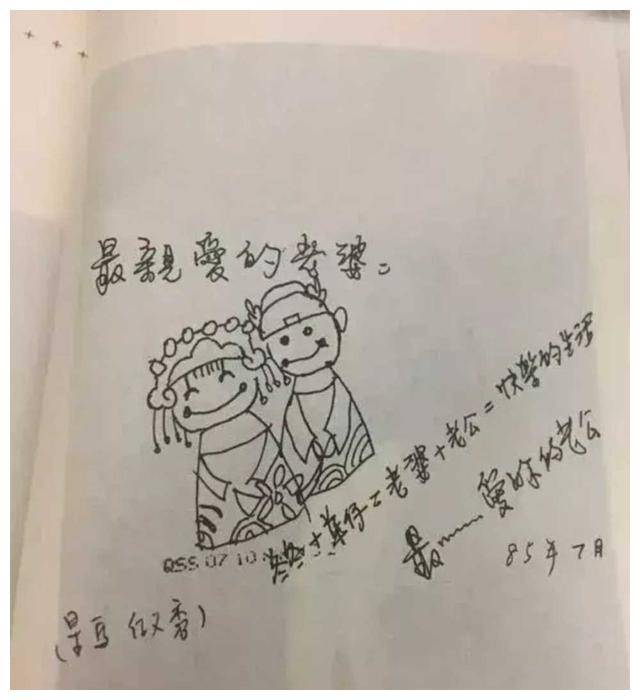 最親愛的老婆：
+華仔=老婆+老公=快樂的生活
最……愛妳的老公
85年7月
QSS 07 10